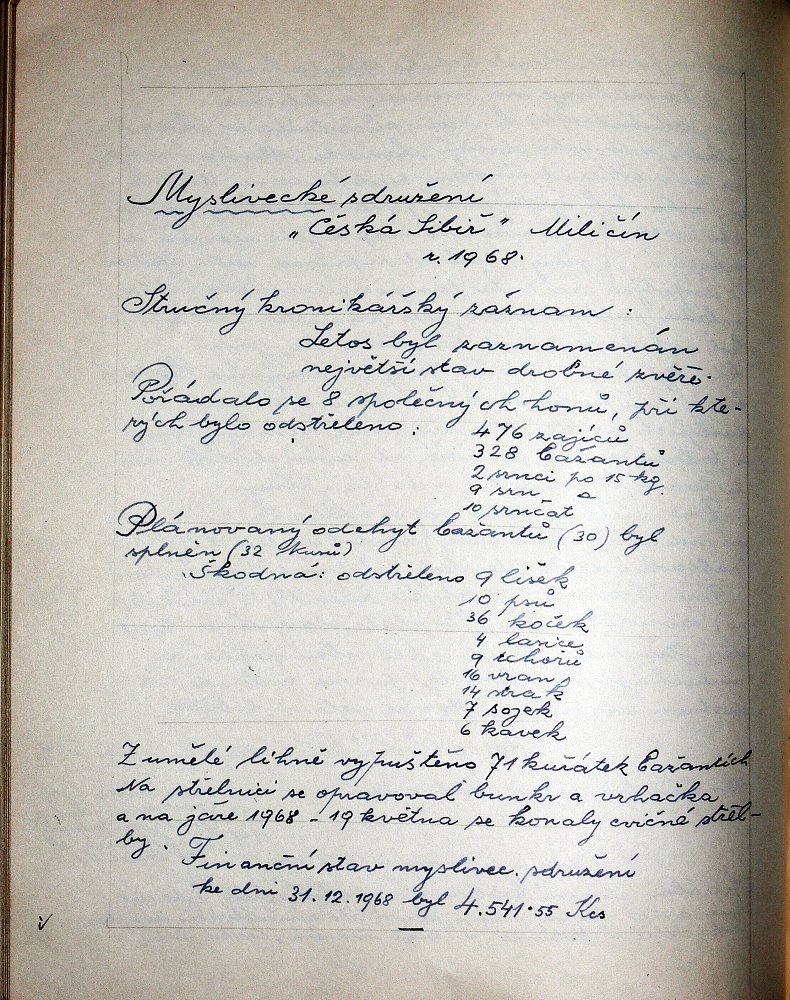 Myslivecké sdružení
„Česká Sibiř" Miličín
r. 1968.
Stručný kronikářský záznam :
Letos byl zaznamenán
největší stav drobné zvěře.
Pořádalo se 8 společných honů, při kte-
rých bylo odstřeleno :
476 zajíců
328 bažantů
2 srnci po 15 kg.
9 srn a
10 srnčat
Plánovaný odchyt bažantů (30) byl
splněn (32 kusů)
Škodná: odstřeleno 9 lišek
10 psů
36 koček
4 lasice
9 tchořů
16 vran
14 strak
7 sojek
6 kavek
Z umělé líhně vypuštěno 71 kuřátek bažantích
Na střelnici se opravoval bunkr a vrhačka
a na jáře 1968 - 19 května se konaly cvičné střel-
by.
Finanční stav myslivec. sdružení
ke dni 31.12.1968 byl 4.541.55 Kcs